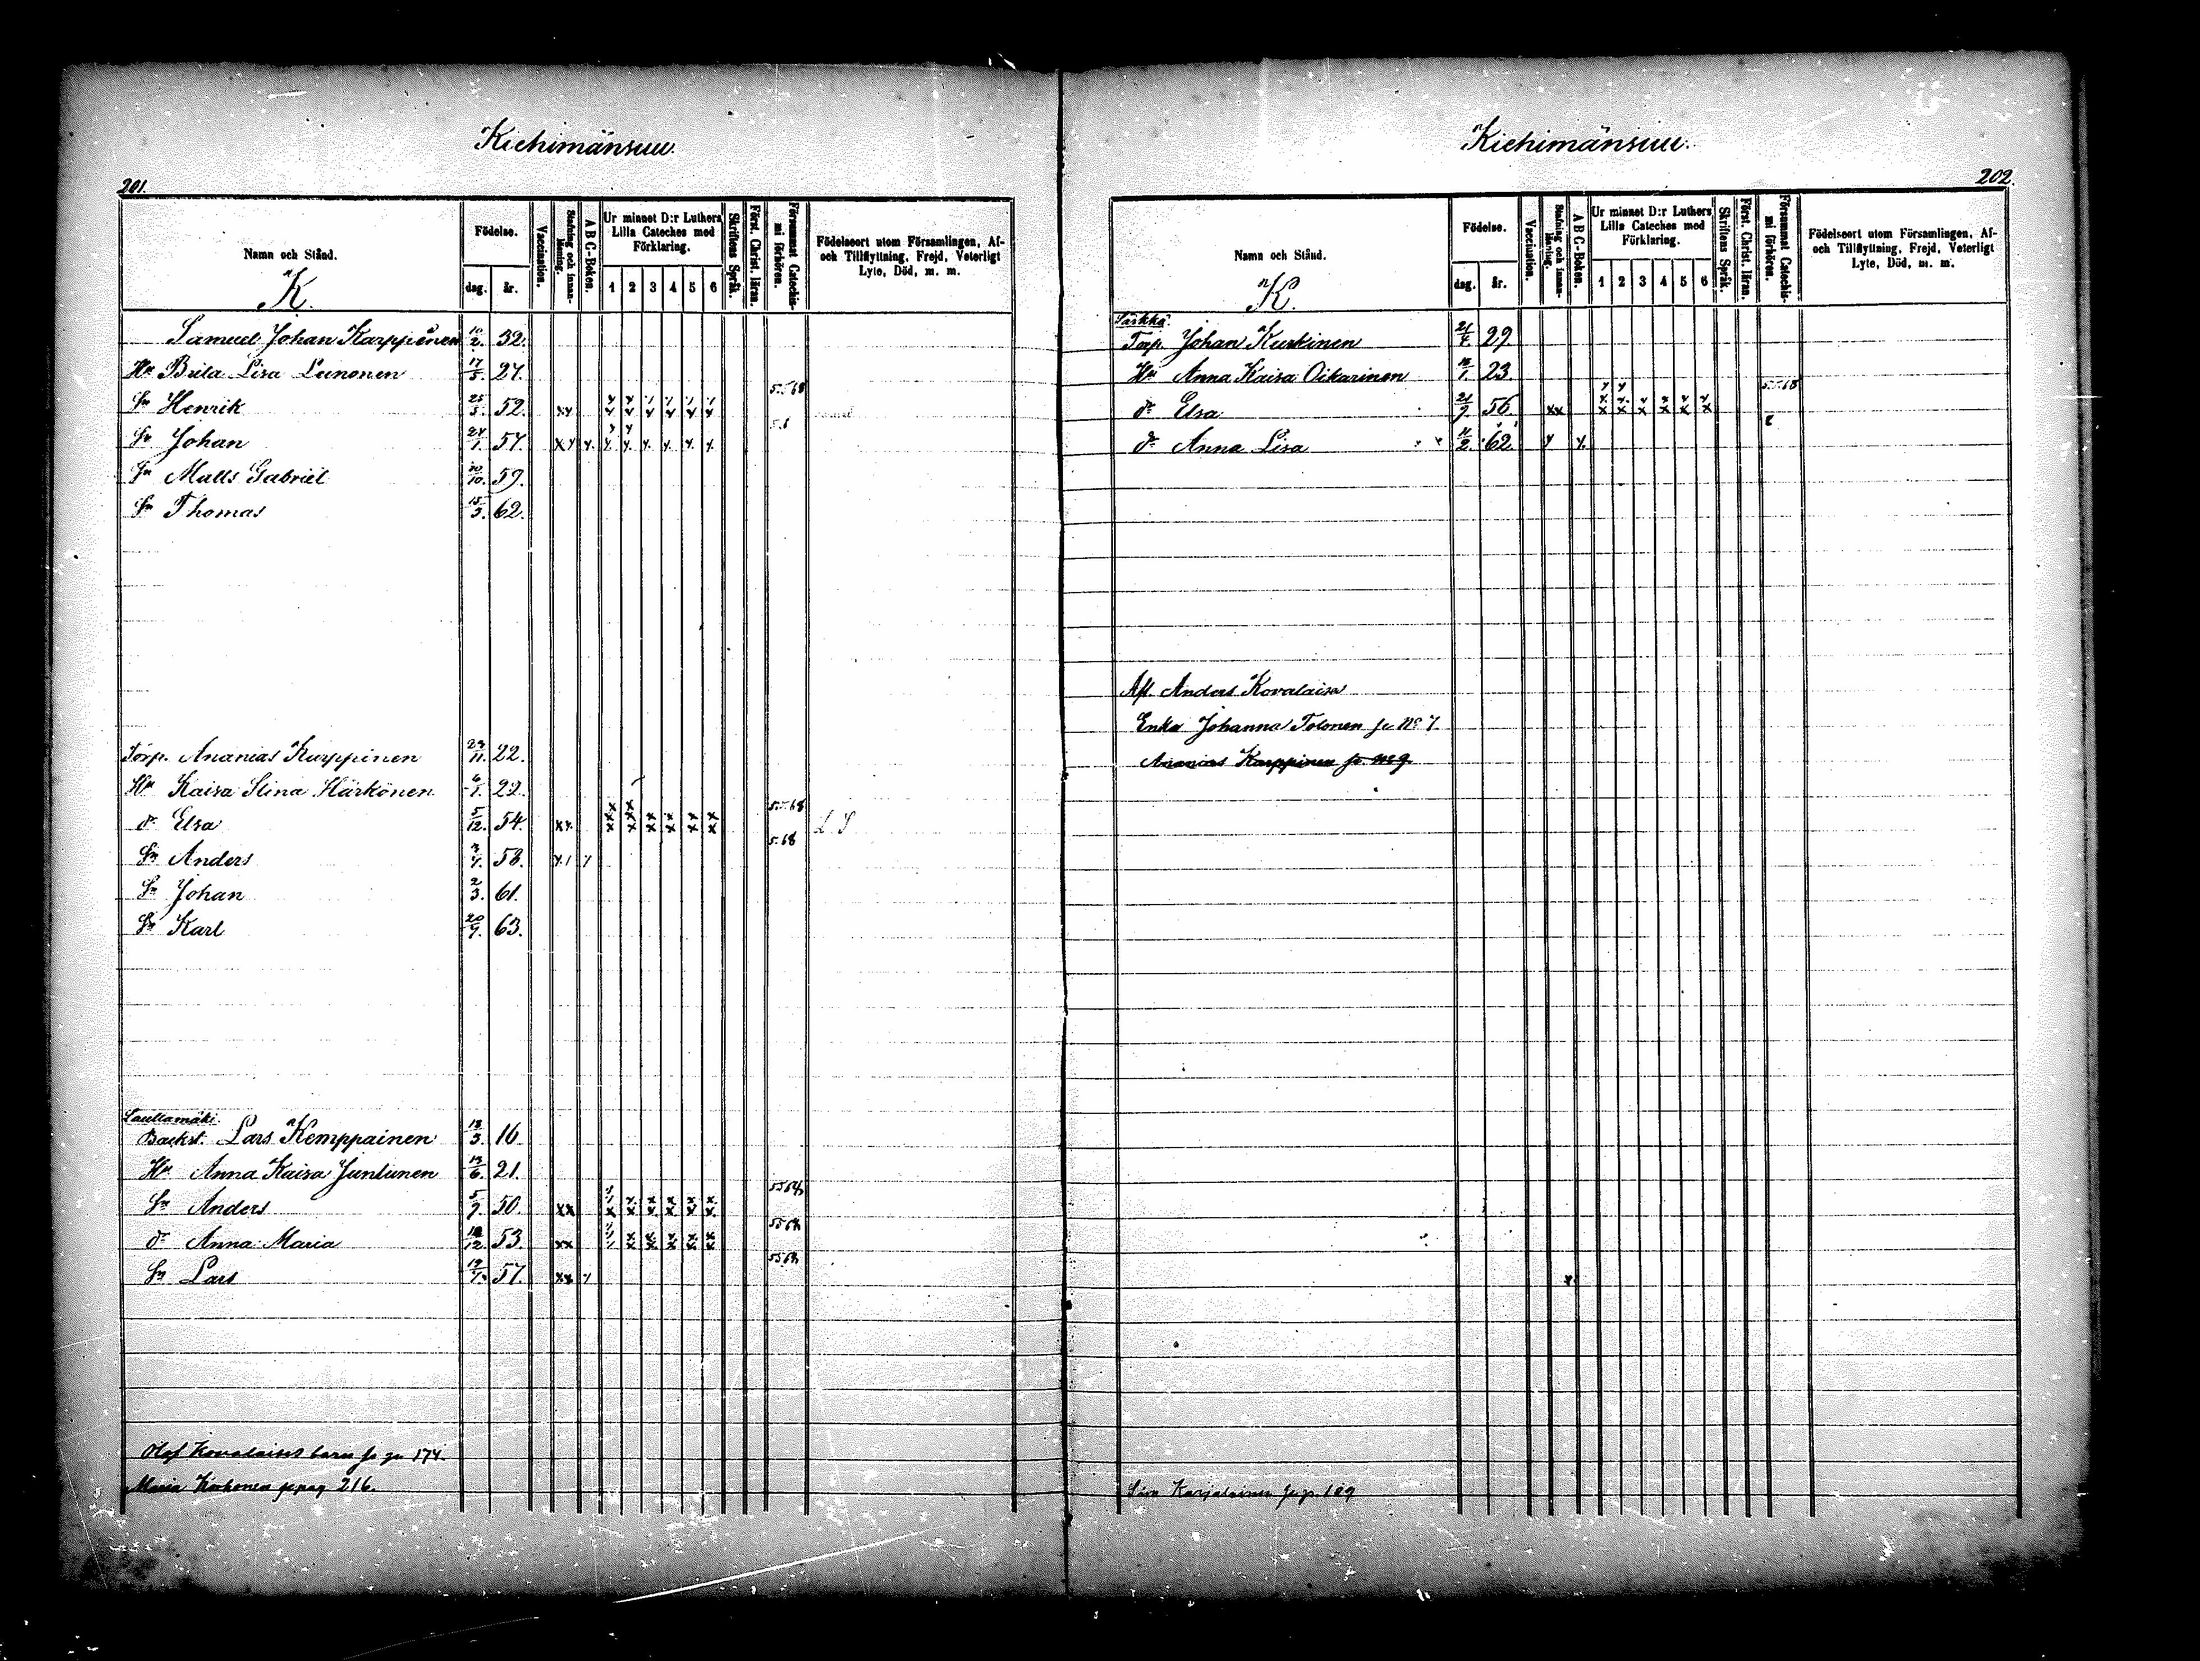 Kiehimänsuu.
201.
Namn och Stånd.
K.
Födelse.
dag.
år.
Vaccination.
Stafning och innanläsning.
A B C-Boken.
Ur minnet D:r Luthers Lilla Cateches med Förklaring.
1 2 3 4 5 6
Skriftens Språk.
Först. Christ. läran.
Försummat Catechismi förhören.
Födelseort utom Församlingen, Af- och Tillflyttning, Frejd, Veterligt Lyte, Död, m. m.
Samuel Johan Karppinen 10/2. 32.
Hu Brita Lisa Leinonen 17/5. 27.
Sn Henrik 25/5. 52. xx
Sn Johan 57. xx x
Sn Matts Gabriel 10/10. 59.
Sn Thomas 15/5. 62.
Torp. Ananias Karppinen 29/11. 22.
Hu Kaisa Stina Härkönen 22.
dr Elsa 5/12. 54. xx 5.68
Sn Anders 58. 5.68
Sn Johan 2/3. 61.
Sn Karl 20/9. 63.
Lauttamäki.
Backst. Lars Kemppainen 13/3. 16.
Hu Anna Kaisa Juntunen 13/6. 21.
Sn Anders 5/9. 50. xx
dr Anna Maria 12. 53. xx
Sn Lars 57. xx
Olof Kovalaises barn se p. 174.
Maria Korhonen se pag 216.
Kiehimänsuu.
202.
Namn och Stånd.
K.
Födelse.
dag.
år.
Vaccination.
Stafning och innanläsning.
A B C-Boken.
Ur minnet D:r Luthers Lilla Cateches med Förklaring.
1 2 3 4 5 6
Skriftens Språk.
Först. Christ. läran.
Försummat Catechismi förhören.
Födelseort utom Församlingen, Af- och Tillflyttning, Frejd, Veterligt Lyte, Död, m. m.
Särkkä.
Torp. Johan Kurkinen 21/4 29
Hu Anna Kaisa Oikarinen 23.
dr Elsa 21/9. 56. xx
dr Anna Lisa 11/2. 62.
Afl. Anders Kovalaisa
Enka Johanna Tolonen se No 7.
Ananias Karppinen se No 9.
Karjalainen se p. 189